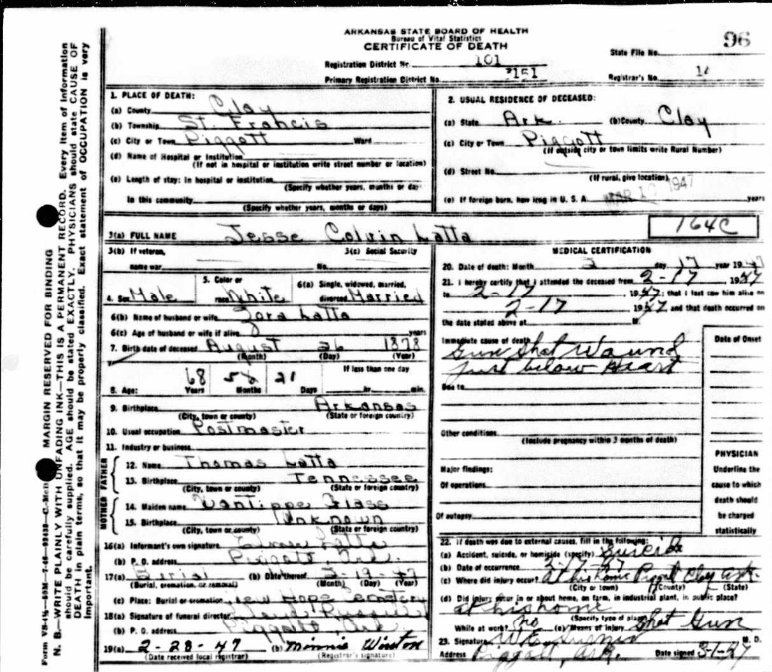 ARKANSAS STATE BOARD OF HEALTH
Bureau of Vital Statistics
CERTIFICATE OF DEATH
96
State File No.
Registration District No. 101
Primary Registration District No. 7151
Registrar's No.
1. PLACE OF DEATH:
(a) County Clay
(b) Township St. Francis
(c) City or Town Piggott Ward
(d) Name of Hospital or Institution
(If not in hospital or institution write street number or location)
(e) Length of stay: In hospital or institution
(Specify whether years, months or days)
In this community
(Specify whether years, months or days)
2. USUAL RESIDENCE OF DECEASED:
(a) State Ark. (b) County Clay
(c) City or Town Piggott
(If outside city or town limits write Rural Number)
(d) Street No.
(If rural, give location)
(e) If foreign born, how long in U. S. A. years
MAR 1947
164C
3(a) FULL NAME Jesse Colvin Latta
3(b) If veteran,
name war
3(c) Social Security
No.
4. Sex Male
5. Color or
race White
6(a) Single, widowed, married,
divorced Married
6(b) Name of husband or wife Zora Latta
6(c) Age of husband or wife if alive years
7. Birth date of deceased August 26 1878
(Month) (Day) (Year)
8. Age: 68 Years Months 21 Days
If less than one day
hr. min.
9. Birthplace Arkansas
(City, town or county) (State or foreign country)
10. Usual occupation Postmaster
11. Industry or business
FATHER
12. Name Thomas Latta
13. Birthplace Tennessee
(City, town or county) (State or foreign country)
MOTHER
14. Maiden name
15. Birthplace Unknown
(City, town or county) (State or foreign country)
16(a) Informant's own signature Latta
(b) P. O. address Piggott Ark.
17(a) Burial (b) Date thereof 2-19-47
(Burial, cremation, or removal) (Month) (Day) (Year)
(c) Place: Burial or cremation New Hope Cemetery
18(a) Signature of funeral director
(b) P. O. address Piggott Ark.
19(a) 2-28-47 (b) Minnie Winton
(Date received local registrar) (Registrar's signature)
MEDICAL CERTIFICATION
20. Date of death: Month 2 day 17 year 1947
21. I hereby certify that I attended the deceased from 2-17 1947
to 2-17 1947; that I last saw him alive on
2-17 1947 and that death occurred on
the date stated above at M.
Immediate cause of death
Gun Shot Wound
just below Heart
Date of Onset
Due to
Other conditions
(Include pregnancy within 3 months of death)
Major findings:
Of operations
Of autopsy
PHYSICIAN
Underline the
cause to which
death should
be charged
statistically
22. If death was due to external causes, fill in the following:
(a) Accident, suicide, or homicide (specify) Suicide
(b) Date of occurrence 2-17-47
(c) Where did injury occur? at his home Piggott Clay Ark.
(City or town) (County) (State)
(d) Did injury occur in or about home, on farm, in industrial plant, in public place?
at his home
(Specify type of place)
While at work? no (e) Means of injury Shot Gun
23. Signature M. D.
Address Piggott, Ark. Date signed 3-1-47
MARGIN RESERVED FOR BINDING
N. B.—WRITE PLAINLY WITH UNFADING INK—THIS IS A PERMANENT RECORD. Every item of information
should be carefully supplied. AGE should be stated EXACTLY. PHYSICIANS should state CAUSE OF
DEATH in plain terms, so that it may be properly classified. Exact statement of OCCUPATION is very
important.